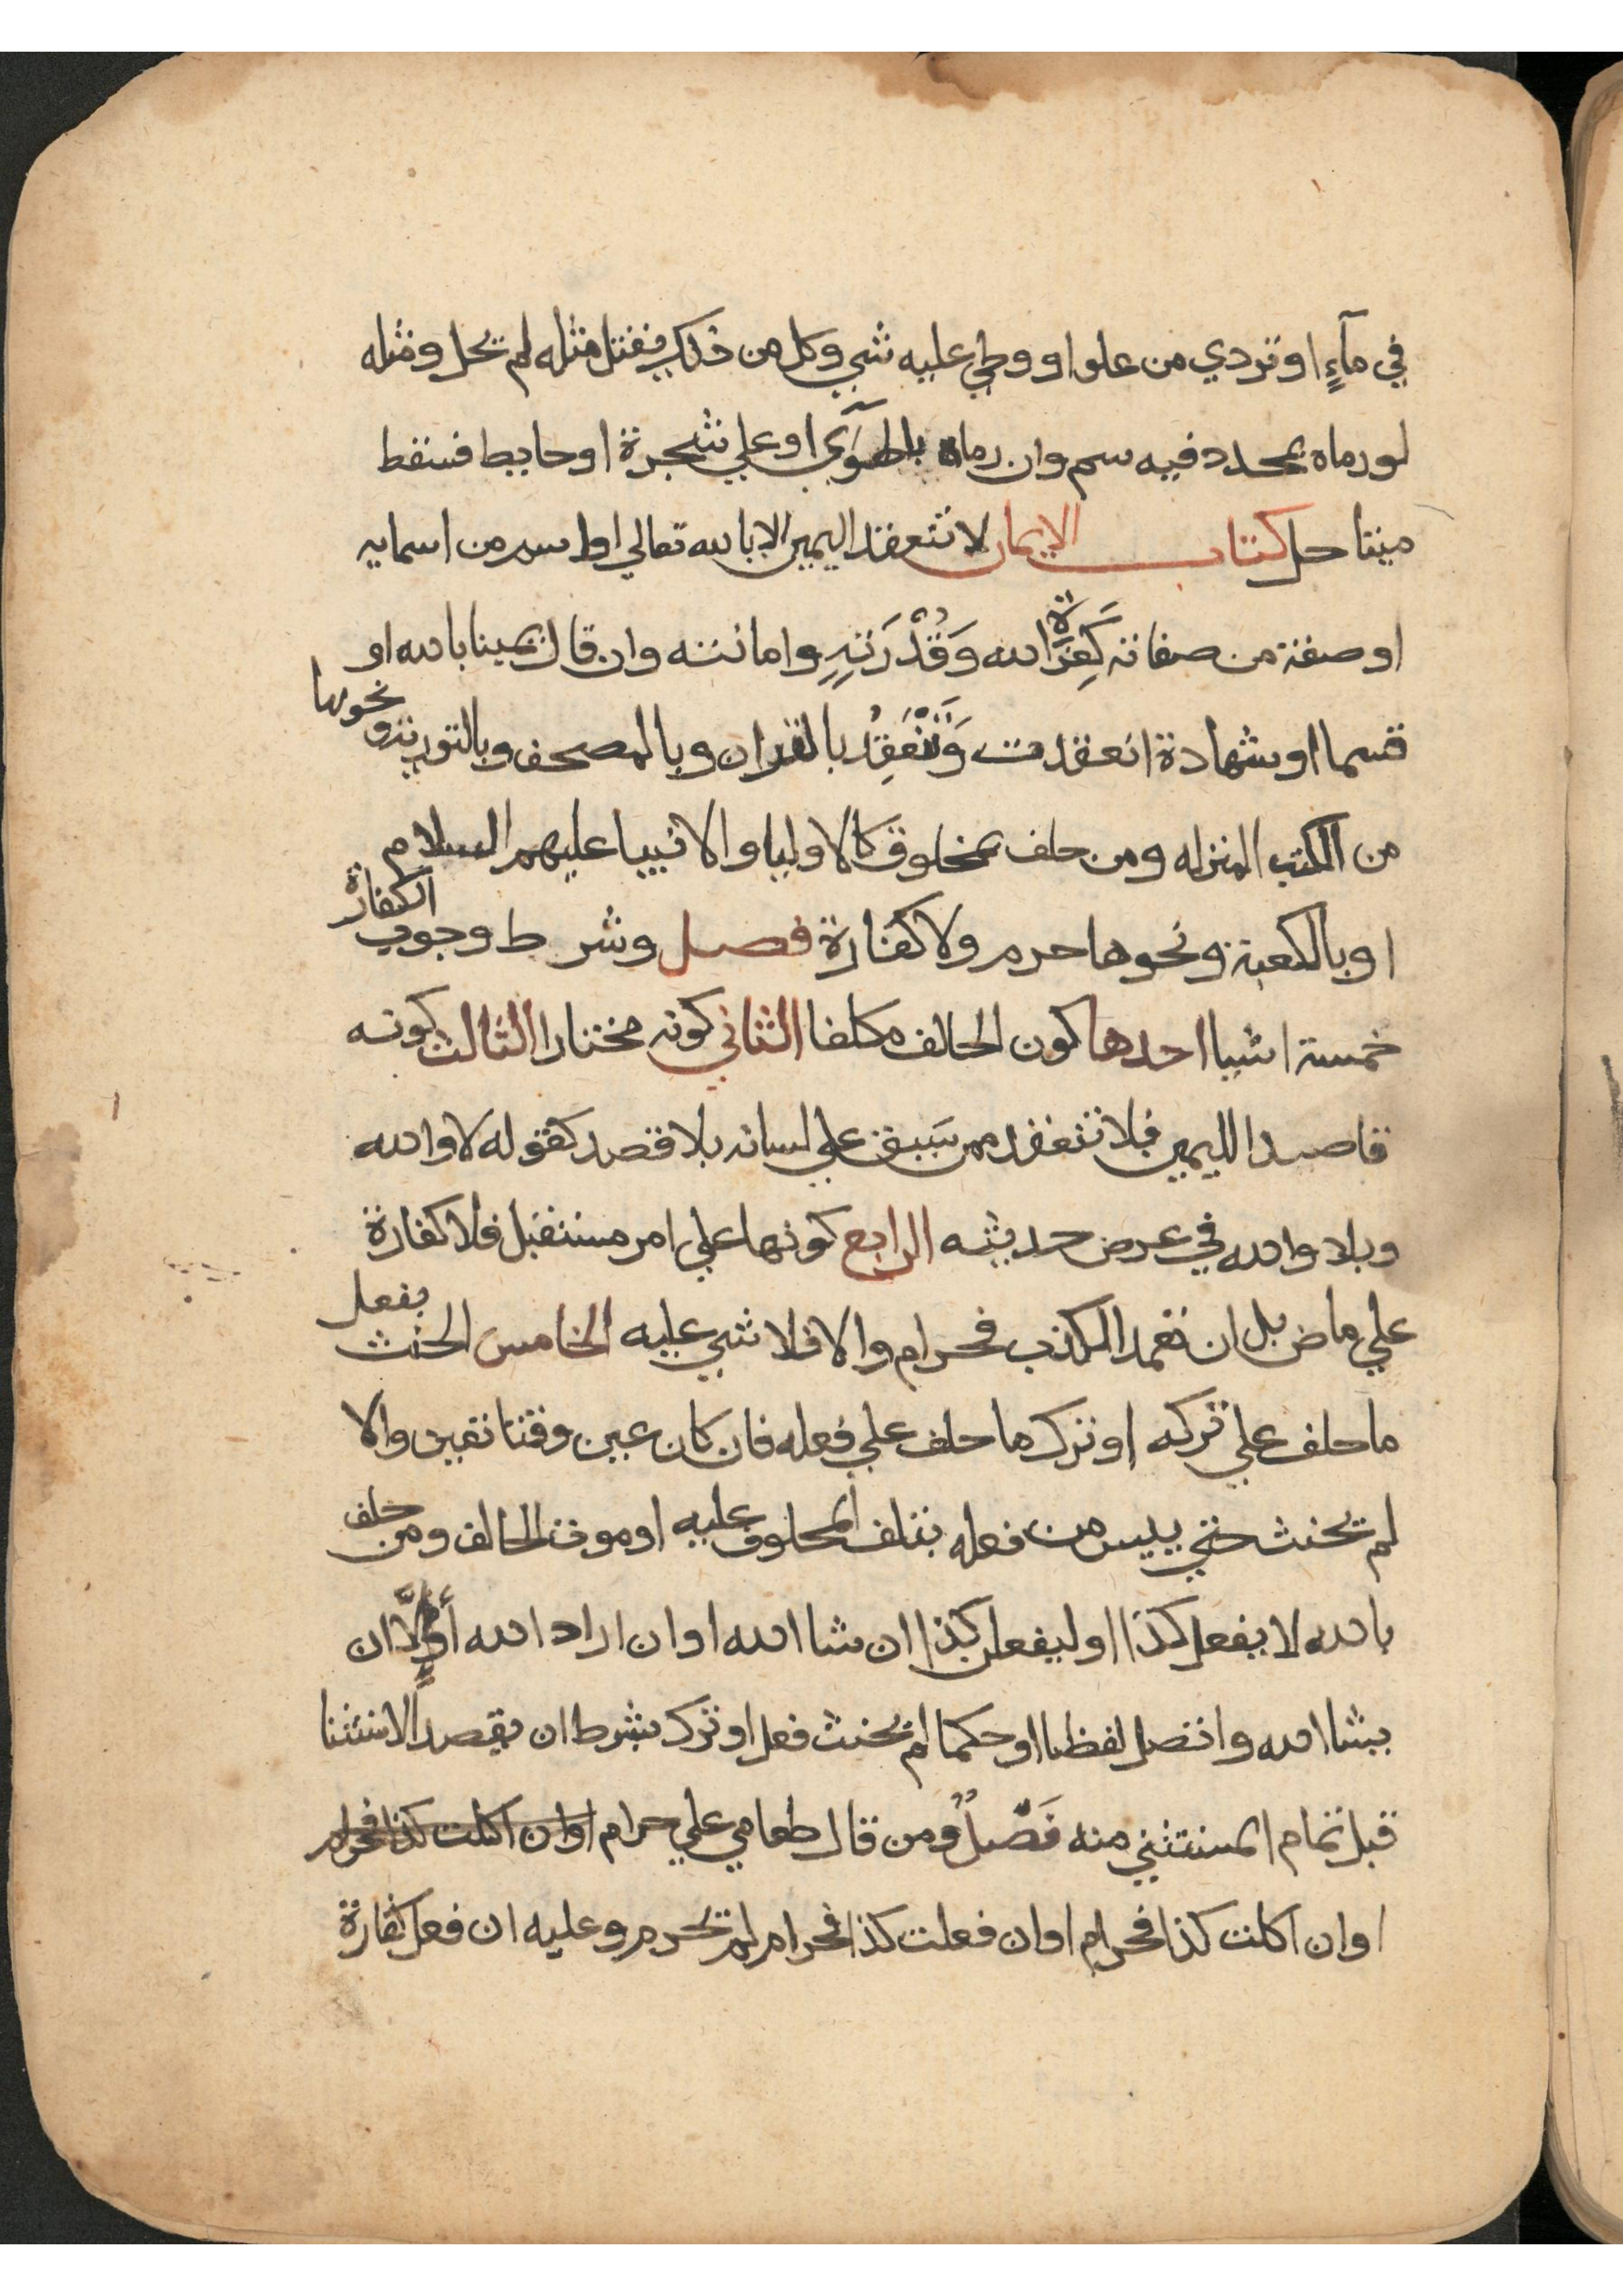 في مآءٍ او تردي من علو او وطي عليه شي وكل من ذلك يقتل مثله لم يحل ومثله
لو رماه بمحدد فيه سم وان رماه بالهوآي او علي شجرة او حايط فسقط
ميتا حل كتاب الايمان لا تنعقد اليمين الا بالله تعالي او اسم من اسمايه
او صفة من صفاته كَعِزَّة الله وَقُدْرَتِهِ وامانته وان قال يمينا بالله او
قسما او شهادة انعقدت وَتَنْعَقِدُ بالقران وبالمصحف وبالتورية ونحوها
من الكتب المنزله ومن حلف بمخلوق كالاوليا والانبيا عليهم السلام
او بالكعبة ونحوها حرم ولا كفارة فصل وشرط وجوب الكفارة
خمسة اشيا احدها كون الحالف مكلفا الثاني كونه مختارا الثالث كونه
قاصدا لليمين فلا تنعقد ممن سَبق علي لسانه بلا قصد كقوله لا والله
وبلا والله في عرض حديثه الرابع كونها علي امر مستقبل فلا كفارة
علي ماض بل ان تعمد الكذب فحرام والا فلا شي عليه الخامس الحنث بفعل
ما حلف علي تركه او ترك ما حلف علي فعله فان كان عين وقتا تعين والا
لم يحنث حتي ييس من فعله بتلف المحلوف عليه او موت الحالف ومن حلف
بالله لا يفعل كذا او ليفعلن كذا ان شا الله او ان اراد الله أو إلَّا ان
يشا الله واتصل لفظا او حكما لم يحنث فعل او ترك بشرط ان يقصد الاستثنا
قبل تمام المستثني منه فَصْلٌ ومن قال طعامي علي حرام او ان اكلت كذا فحرام
او ان اكلت كذا فحرام او ان فعلت كذا فحرام لم يحرم وعليه ان فعل كفارة